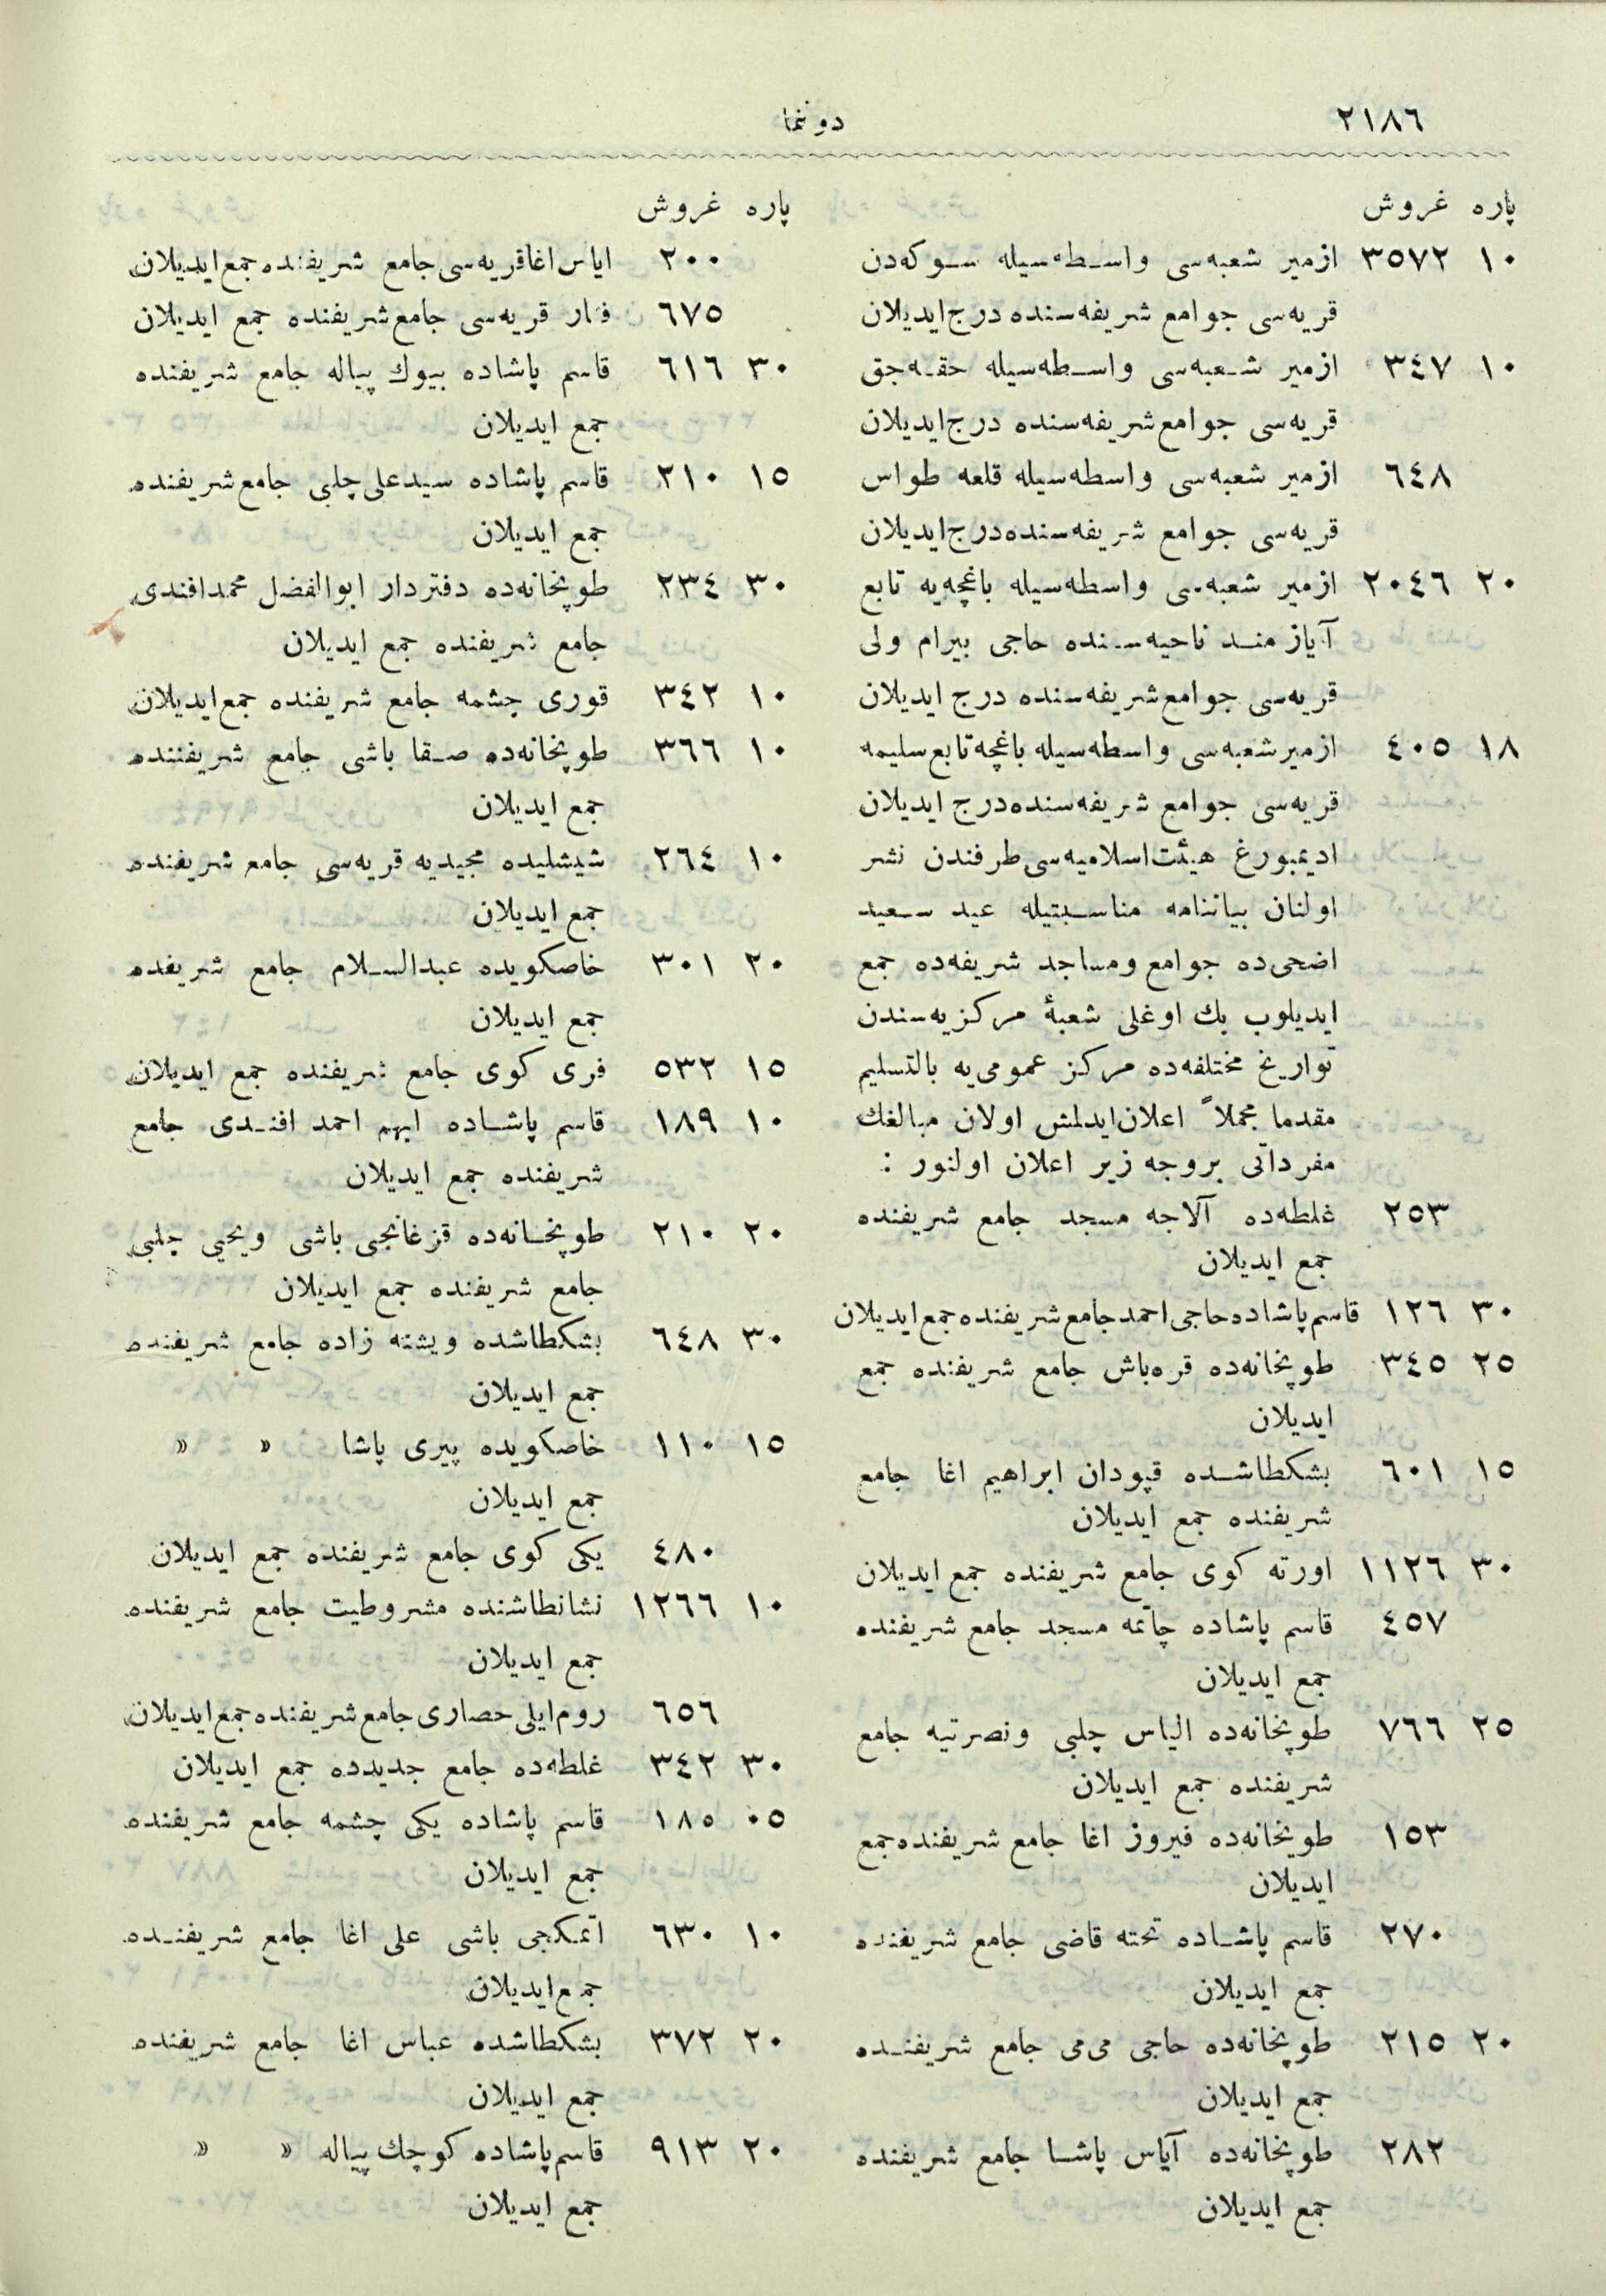 ٢١٨٦
دوننما
پاره غروش
١٠ ٣٥٧٢ ازمیر شعبه‌سی واسطه‌سیله سوکه‌دن
قریه‌سی جوامع شریفه‌سنده درج ایدیلان
١٠ ٣٤٧ ازمیر شعبه‌سی واسطه‌سیله حقه‌جق
قریه‌سی جوامع شریفه‌سنده درج ایدیلان
٦٤٨ ازمیر شعبه‌سی واسطه‌سیله قلعه طواس
قریه‌سی جوامع شریفه‌سنده درج ایدیلان
٢٠ ٢٠٤٦ ازمیر شعبه‌سی واسطه‌سیله باغچه‌یه تابع
آیازمند ناحیه‌سنده حاجی بیرام ولی
قریه‌سی جوامع شریفه‌سنده درج ایدیلان
١٨ ٤٠٥ ازمیر شعبه‌سی واسطه‌سیله باغچه تابع سلیمه
قریه‌سی جوامع شریفه‌سنده درج ایدیلان
ادیمبورغ هیئت اسلامیه‌سی طرفندن نشر
اولنان بیاننامه مناسبتیله عید سعید
اضحی‌ده جوامع ومساجد شریفه‌ده جمع
ایدیلوب بك اوغلی شعبهٔ مرکزیه‌سندن
تواریخ مختلفه‌ده مرکز عمومی‌یه بالتسلیم
مقدما مجملاً اعلان ایدلمش اولان مبالغك
مفرداتی بروجه زیر اعلان اولنور :
٢٥٣ غلطه‌ده آلاجه مسجد جامع شریفنده
جمع ایدیلان
٣٠ ١٢٦ قاسم پاشاده حاجی احمد جامع شریفنده جمع ایدیلان
٢٥ ٣٤٥ طوپخانه‌ده قره‌باش جامع شریفنده جمع
ایدیلان
١٥ ٦٠١ بشکطاشده قپودان ابراهیم اغا جامع
شریفنده جمع ایدیلان
٣٠ ١١٢٦ اورته کوی جامع شریفنده جمع ایدیلان
٤٥٧ قاسم پاشاده چاتمه مسجد جامع شریفنده
جمع ایدیلان
٢٥ ٧٦٦ طوپخانه‌ده الیاس چلبی ونصرتیه جامع
شریفنده جمع ایدیلان
١٥٣ طوپخانه‌ده فیروز اغا جامع شریفنده جمع
ایدیلان
٢٧٠ قاسم پاشاده تحته قاضی جامع شریفنده
جمع ایدیلان
٢٠ ٢١٥ طوپخانه‌ده حاجی می‌می جامع شریفنده
جمع ایدیلان
٢٨٢ طوپخانه‌ده آیاس پاشا جامع شریفنده
جمع ایدیلان
پاره غروش
٢٠٠ ایاس اغا قریه‌سی جامع شریفنده جمع ایدیلان
٦٧٥ فنار قریه‌سی جامع شریفنده جمع ایدیلان
٣٠ ٦١٦ قاسم پاشاده بیوك پیاله جامع شریفنده
جمع ایدیلان
١٥ ٢١٠ قاسم پاشاده سید علی چلبی جامع شریفنده
جمع ایدیلان
٣٠ ٢٣٤ طوپخانه‌ده دفتردار ابوالفضل محمد افندی
جامع شریفنده جمع ایدیلان
١٠ ٣٤٢ قوری چشمه جامع شریفنده جمع ایدیلان
١٠ ٣٦٦ طوپخانه‌ده صقا باشی جامع شریفننده
جمع ایدیلان
١٠ ٢٦٤ شیشلیده مجیدیه قریه‌سی جامع شریفنده
جمع ایدیلان
٢٠ ٣٠١ خاصکویده عبدالسلام جامع شریفده
جمع ایدیلان
١٥ ٥٣٢ فری کوی جامع شریفنده جمع ایدیلان
١٠ ١٨٩ قاسم پاشاده احمد افندی جامع
شریفنده جمع ایدیلان
٢٠ ٢١٠ طوپخانه‌ده قزغانجی باشی ویحیی چلبی
جامع شریفنده جمع ایدیلان
٣٠ ٦٤٨ بشکطاشده ویشنه زاده جامع شریفنده
جمع ایدیلان
١٥ ١١٠ خاصکویده پیری پاشا » »
جمع ایدیلان
٤٨٠ یکی کوی جامع شریفنده جمع ایدیلان
١٠ ١٢٦٦ نشانطاشنده مشروطیت جامع شریفنده
جمع ایدیلان
٦٥٦ روم ایلی حصاری جامع شریفنده جمع ایدیلان
٣٠ ٣٤٢ غلطه‌ده جامع جدیدده جمع ایدیلان
٠٥ ١٨٥ قاسم پاشاده یکی چشمه جامع شریفنده
جمع ایدیلان
١٠ ٦٣٠ اتمکجی باشی علی اغا جامع شریفنده
جمع ایدیلان
٢٠ ٣٧٢ بشکطاشده عباس اغا جامع شریفنده
جمع ایدیلان
٢٠ ٩١٣ قاسم پاشاده کوچك پیاله » »
جمع ایدیلان